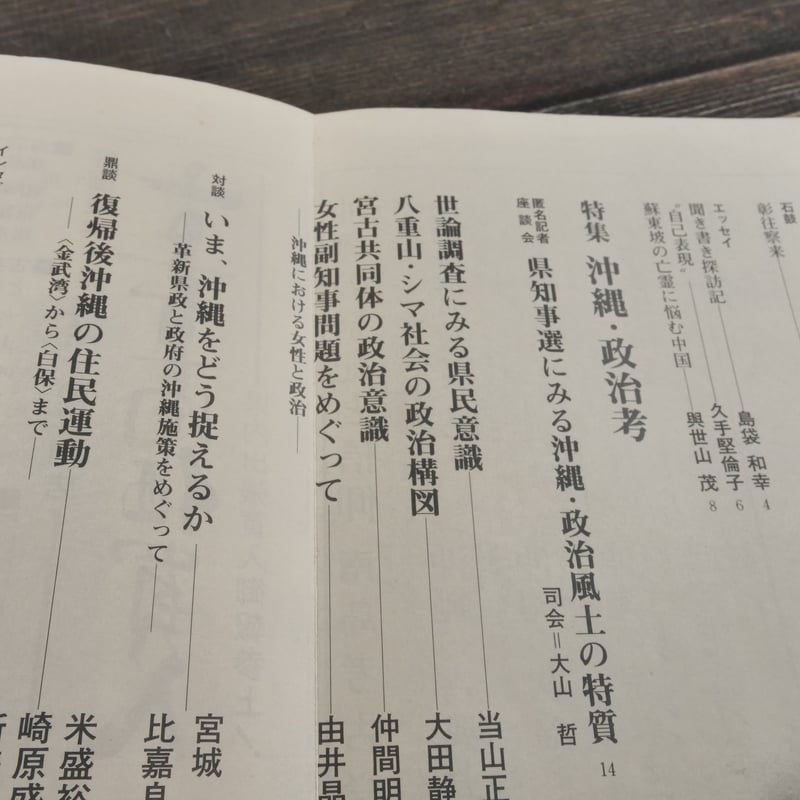 石鼓
彰往察来 島袋 和幸 4
エッセイ
聞き書き探訪記 久手堅倫子 6
“自己表現”
蘇東坡の亡霊に悩む中国 與世山 茂 8
特集 沖縄・政治考
匿名記者座談会 県知事選にみる沖縄・政治風土の特質 14
司会＝大山 哲
世論調査にみる県民意識 当山正
八重山・シマ社会の政治構図 大田静
宮古共同体の政治意識 仲間明
女性副知事問題をめぐって 由井晶
沖縄における女性と政治
対談 いま、沖縄をどう捉えるか 宮城
革新県政と政府の沖縄施策をめぐって 比嘉良
鼎談 復帰後沖縄の住民運動 米盛裕
〈金武湾〉から〈白保〉まで 崎原盛